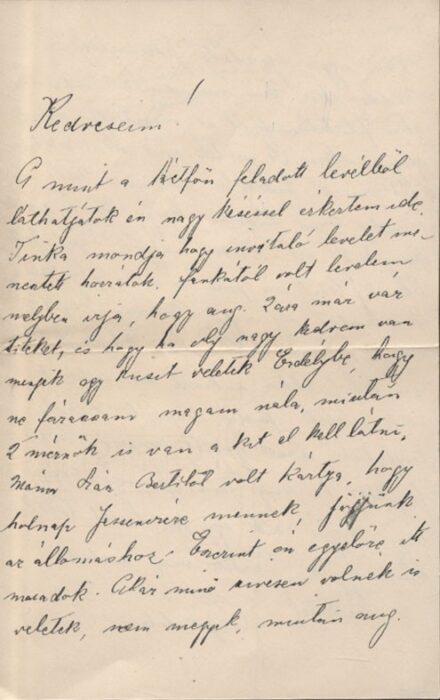 Kedveseim!
A mint a hétfőn feladott levélből
láthatjátok én nagy késéssel érkertem ide.
Tinka mondja hogy invitáló levelet me-
nentett hozzátok. Jankától volt levelem
melyben irja, hogy aug. 2ára már vár
titeket, és hogy ha oly nagy kedvem van
menjek egy kicsit veletek Erdélybe, hogy
ne fárasszam magam nála, miután
2 mérnök is van a kit el kell látni.
Béritől volt kártya, hogy
holnap mennek, jőjjünk
az állomáshoz. Eszerint én egyelőre itt
maradok. Akár minő szivesen volnék is
veletek, nem megyek, miután aug.